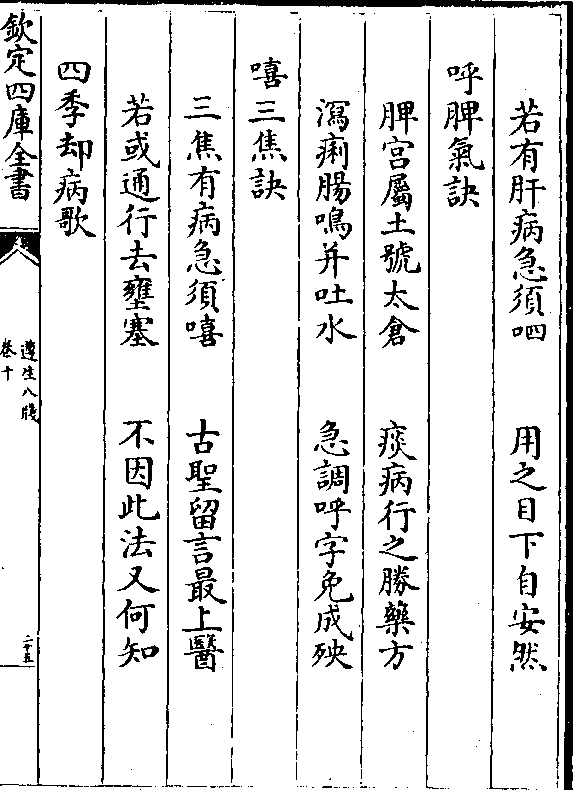 若有肝病急須呬　用之目下自安然
呼脾氣訣
脾宮屬土號太倉　痰病行之勝藥方
瀉痢腸鳴并吐水　急調呼字免成殃
嘻三焦訣
三焦有病急須嘻　古聖留言最上醫
若或通行去壅塞　不因此法又何知
四季却病歌
欽定四庫全書
遵生八牋
卷十
二十五